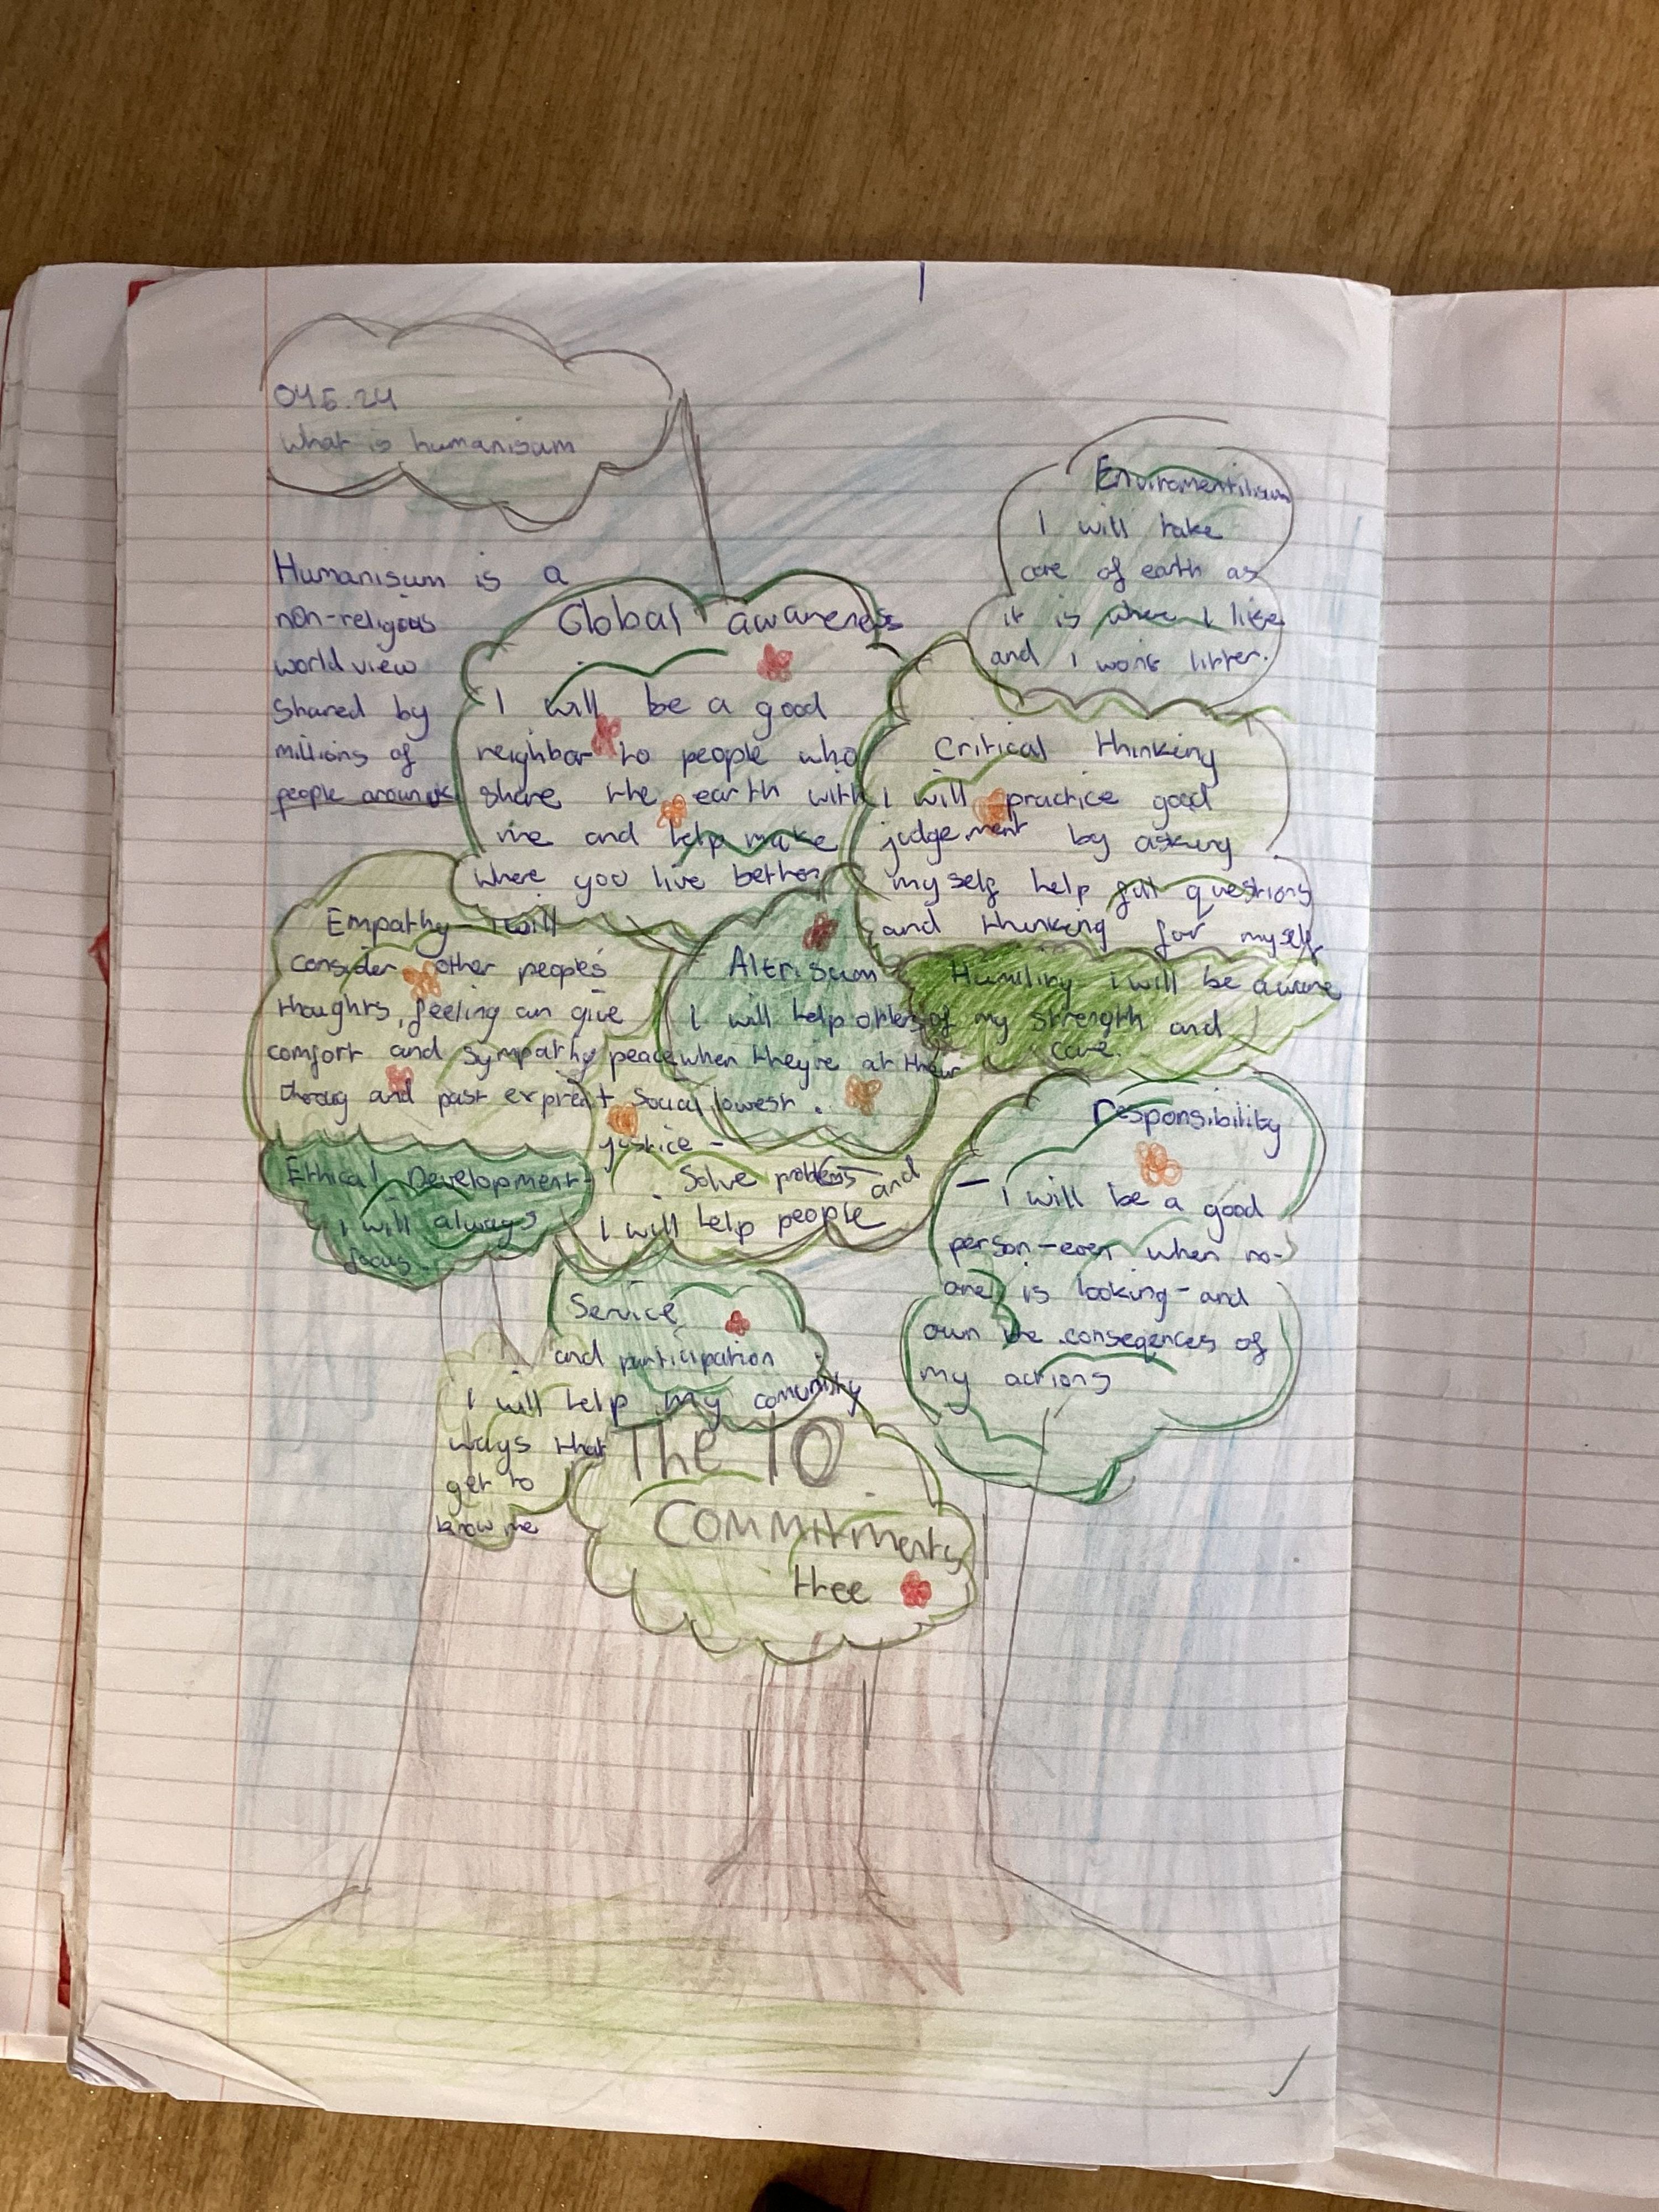 04.6.24
What is humanisum
Humanisum is a
non-religious
world view
Shared by
millions of
people around
Global awareness
I will be a good
neighbor to people who
share the earth with
me and help make
where you live better
Enviromentilisum
I will take
care of earth as
it is where I live
and I wont litter.
Critical thinking
I will practice good
judgement by asking
myself help full questions
and thinking for myself
Empathy - I will
consider other peoples
thoughts, feeling an give
comfort and sympathy
and past
Altrisum
I will help others
when theyre at their
lowest.
Humility - i will be aware
of my strength and
care.
peace
+ Social
justice -
Solve problems and
I will help people
Ethical Development -
I will always
focus.
responsibility
- I will be a good
person - even when no-
one is looking - and
own the conseqences of
my actions
Service
and participation
I will help my comunity
ways that
get to
know me
The 10
Commitments
tree